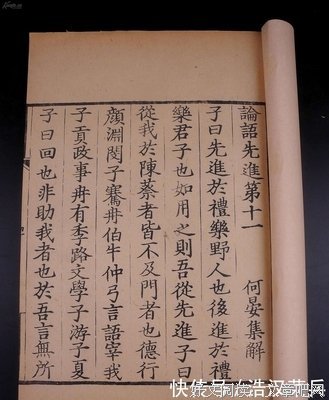 論語先進第十一　何晏集解
子曰先進於禮樂野人也後進於禮
樂君子也如用之則吾從先進子曰
從我於陳蔡者皆不及門者也德行
顏淵閔子騫冉伯牛仲弓言語宰我
子貢政事冉有季路文學子游子夏
子曰回也非助我者也於吾言無所
快传号